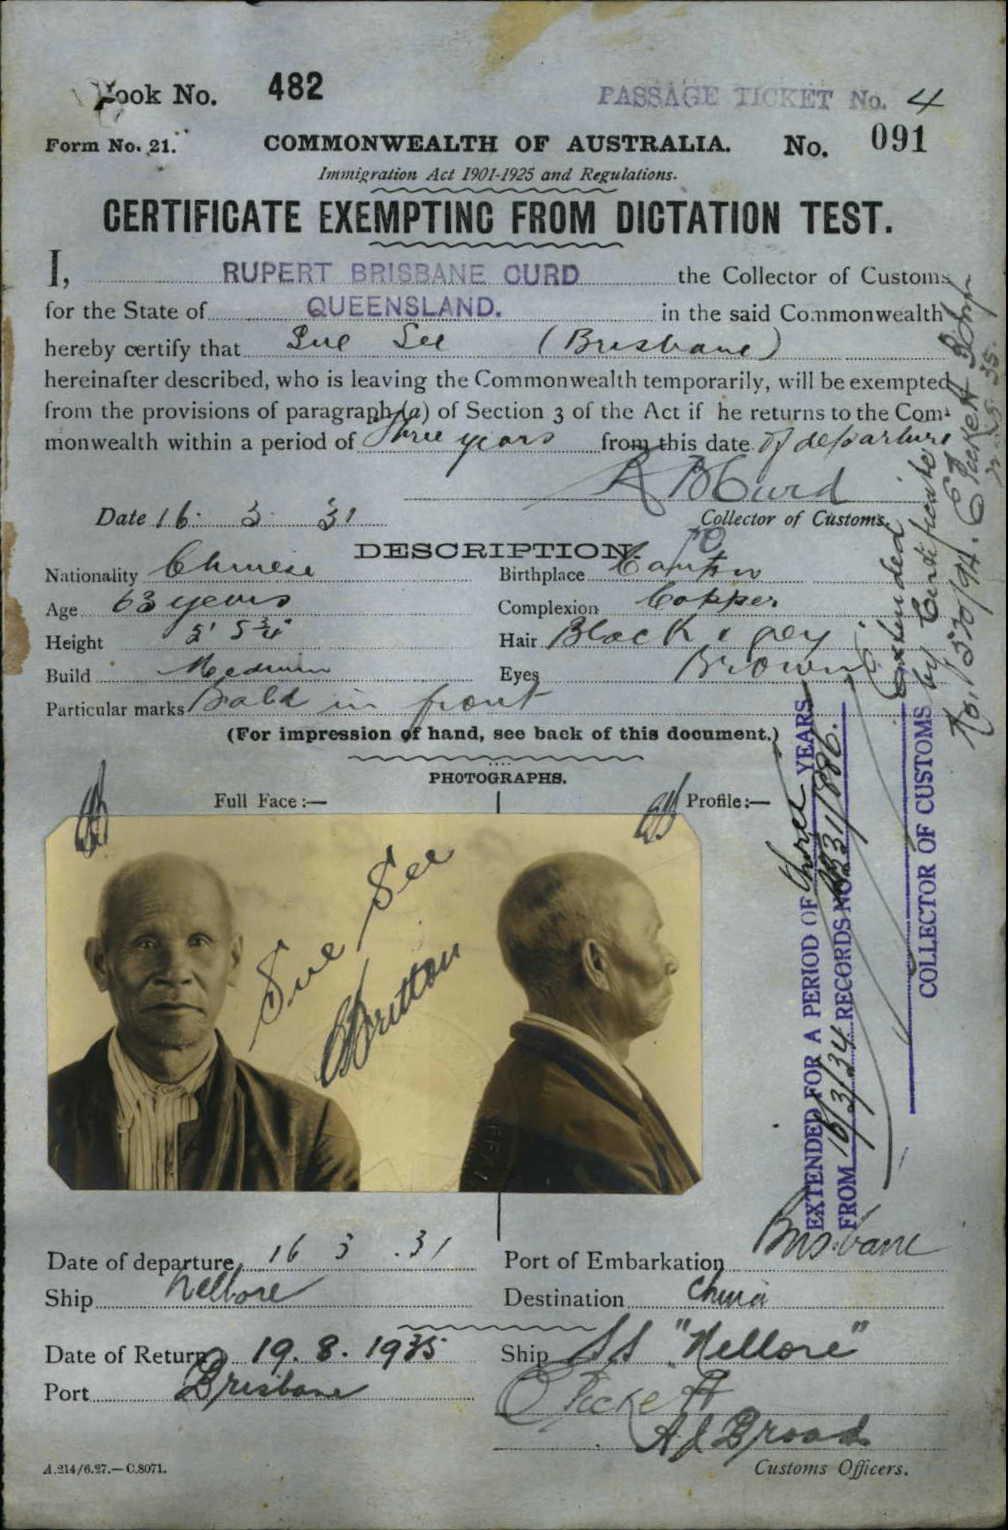 Book No. 482
PASSAGE TICKET No. 4
Form No. 21.
COMMONWEALTH OF AUSTRALIA.
No. 091
Immigration Act 1901-1925 and Regulations.
CERTIFICATE EXEMPTING FROM DICTATION TEST.
I, RUPERT BRISBANE CURD the Collector of Customs
for the State of QUEENSLAND. in the said Commonwealth
hereby certify that Sue See (Brisbane)
hereinafter described, who is leaving the Commonwealth temporarily, will be exempted
from the provisions of paragraph (a) of Section 3 of the Act if he returns to the Com-
monwealth within a period of three years from this date of departure
R B Curd
Date 16. 3. 31
Collector of Customs.
DESCRIPTION.
Nationality Chinese
Birthplace Canton
Age 63 years
Complexion Copper
Height 5' 5¾"
Hair Black & grey
Build Medium
Eyes Brown
Particular marks Bald in front
(For impression of hand, see back of this document.)
PHOTOGRAPHS.
Full Face :—
Profile :—
Sue See
Britton
EXTENDED FOR A PERIOD OF three YEARS
FROM 16/3/34 RECORDS No
COLLECTOR OF CUSTOMS
Extended
by Certificate
No. 570/94. C Pickett
Date of departure 16 3 . 31
Port of Embarkation Brisbane
Ship Nellore
Destination China
Date of Return 19. 8. 1935
Ship SS "Nellore"
Port Brisbane
C Pickett
A J Broad
A.214/6.27.—C.8071.
Customs Officers.